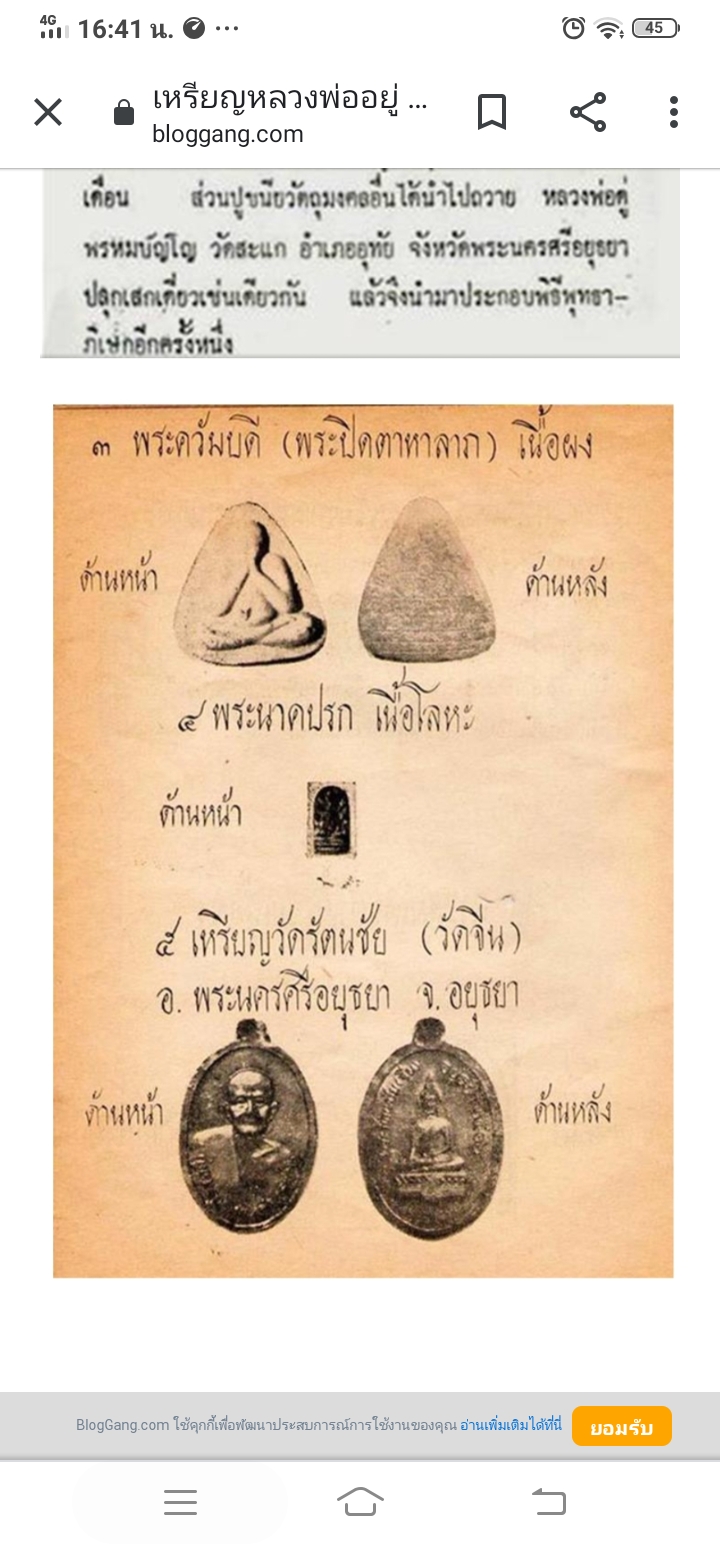 4G 16:41 น. ... 45
เหรียญหลวงพ่ออยู่ ...
bloggang.com
เดือน ส่วนปูชนียวัตถุมงคลอื่นได้นำไปถวาย หลวงพ่อดู่
พรหมปัญโญ วัดสะแก อำเภออุทัย จังหวัดพระนครศรีอยุธยา
ปลุกเสกเดี่ยวเช่นเดียวกัน แล้วจึงนำมาประกอบพิธีพุทธา-
ภิเษกอีกครั้งหนึ่ง
๓ พระควัมบดี (พระปิดตามหาลาภ) เนื้อผง
ด้านหน้า
ด้านหลัง
๔ พระนาคปรก เนื้อโลหะ
ด้านหน้า
๕ เหรียญวัดรัตนชัย (วัดจีน)
อ. พระนครศรีอยุธยา จ. อยุธยา
ด้านหน้า
ด้านหลัง
BlogGang.com ใช้คุกกี้เพื่อพัฒนาประสบการณ์การใช้งานของคุณ อ่านเพิ่มเติมได้ที่นี่
ยอมรับ